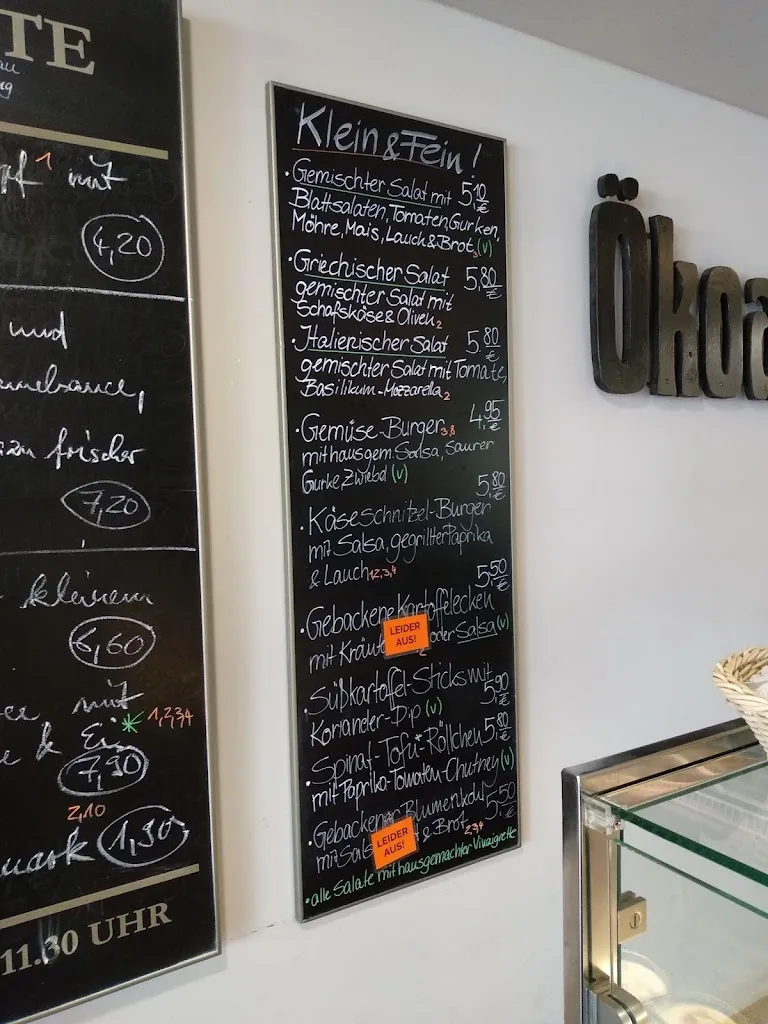 TE
mit
4,20
und
zu frischer
7,20
kleinem
6,60
mit
& Ei * 1,2,3,4
7,90
2,10
1,50
11.30 UHR
Klein & Fein!
• Gemischter Salat mit 5,10 €
Blattsalaten, Tomaten, Gurken,
Möhre, Mais, Lauch & Brot (v)
3
• Griechischer Salat 5,80 €
gemischter Salat mit
Schafskäse & Oliven 2
• Italienischer Salat 5,80 €
gemischter Salat mit Tomate,
Basilikum-Mozzarella 2
• Gemüse-Burger 3,8 4,95 €
mit hausgem. Salsa, Saurer
Gurke, Zwiebel (v)
5,80 €
• Käseschnitzel-Burger
mit Salsa, gegrillter Paprika
& Lauch 1,2,3,4
5,50 €
• Gebackene Kartoffelecken
mit Kräut oder Salsa (v)
2
LEIDER
AUS!
• Süßkartoffel-Sticks mit 5,90 €
Koriander-Dip (v)
• Spinat-Tofu-Röllchen 5,80 €
mit Paprika-Tomaten-Chutney (v)
• Gebackener Blumenkohl 5,50
mit Sals & Brot 2,3,4
LEIDER
AUS!
• alle Salate mit hausgemachter Vinaigrette
Ökoa